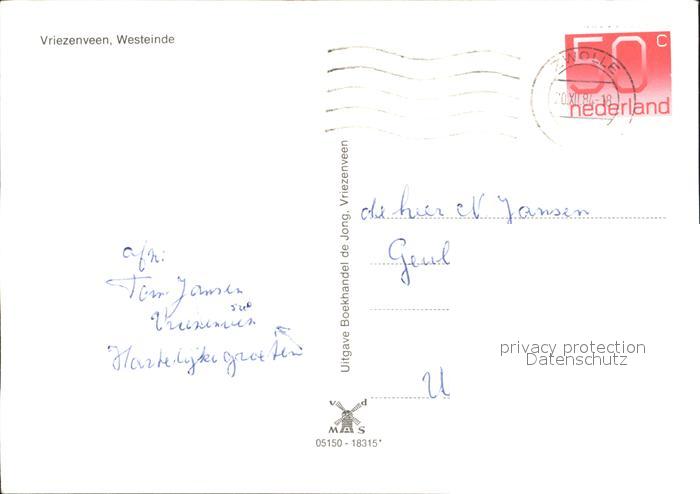 Vriezenveen, Westeinde
50 c
nederland
ZWOLLE
20.XII.84-18
Uitgave Boekhandel de Jong, Vriezenveen
de heer N Jansen
Geul
U
privacy protection
Datenschutz
afz:
Tom Jansen
Vriezenveen
Hartelijke groeten
v d
MAS
05150 - 18315*